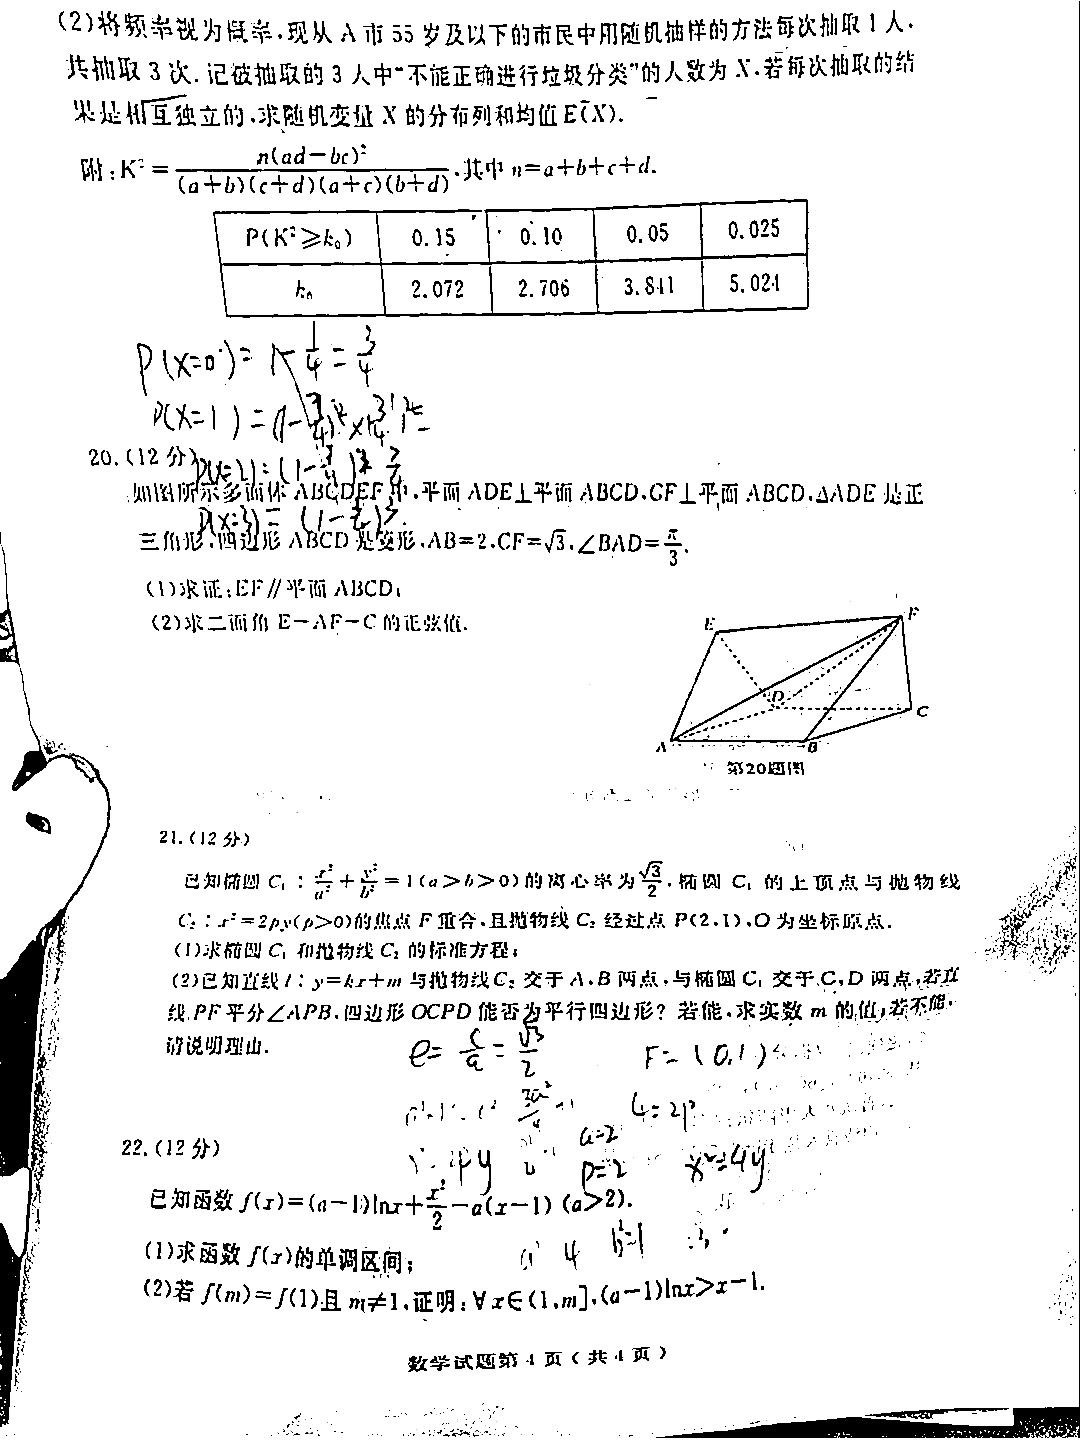 (2)将频率视为概率.现从 A 市 55 岁及以下的市民中用随机抽样的方法每次抽取 1 人.
共抽取 3 次. 记被抽取的 3 人中“不能正确进行垃圾分类”的人数为 X.若每次抽取的结
果是相互独立的.求随机变量 X 的分布列和均值E(X).
附:K²=n(ad-bc)²/(a+b)(c+d)(a+c)(b+d).其中 n=a+b+c+d.
P(K²≥k₀) 0.15 0.10 0.05 0.025
k₀ 2.072 2.706 3.841 5.024
P(X=0)=1-1/4=3/4
P(X=1)=
20.(12 分)
如图所示多面体 ABCDEF 中,平面 ADE⊥平面 ABCD.CF⊥平面 ABCD.△ADE 是正
三角形.四边形 ABCD 是菱形.AB=2.CF=√3.∠BAD=π/3.
(1)求证:EF∥平面 ABCD;
(2)求二面角 E-AF-C 的正弦值.
E
F
D
C
A
B
第20题图
21.(12 分)
已知椭圆 C₁:x²/a²+y²/b²=1(a>b>0)的离心率为√3/2.椭圆 C₁ 的上顶点与抛物线
C₂:x²=2py(p>0)的焦点 F 重合.且抛物线 C₂ 经过点 P(2.1).O 为坐标原点.
(1)求椭圆 C₁ 和抛物线 C₂ 的标准方程;
(2)已知直线 l:y=kx+m 与抛物线C₂ 交于 A.B 两点.与椭圆 C₁ 交于 C.D 两点.若直
线 PF 平分∠APB.四边形 OCPD 能否为平行四边形?若能.求实数 m 的值;若不能.
请说明理由.
e=c/a=√3/2 F=(0,1)
4=2p
a=2
p=2 x²=4y
22.(12 分)
已知函数 f(x)=(a-1)lnx+x²/2-a(x-1) (a>2).
b²=1
(1)求函数 f(x)的单调区间;
(2)若 f(m)=f(1)且 m≠1.证明:∀x∈(1,m].(a-1)lnx>x-1.
数学试题第 4 页(共 4 页)